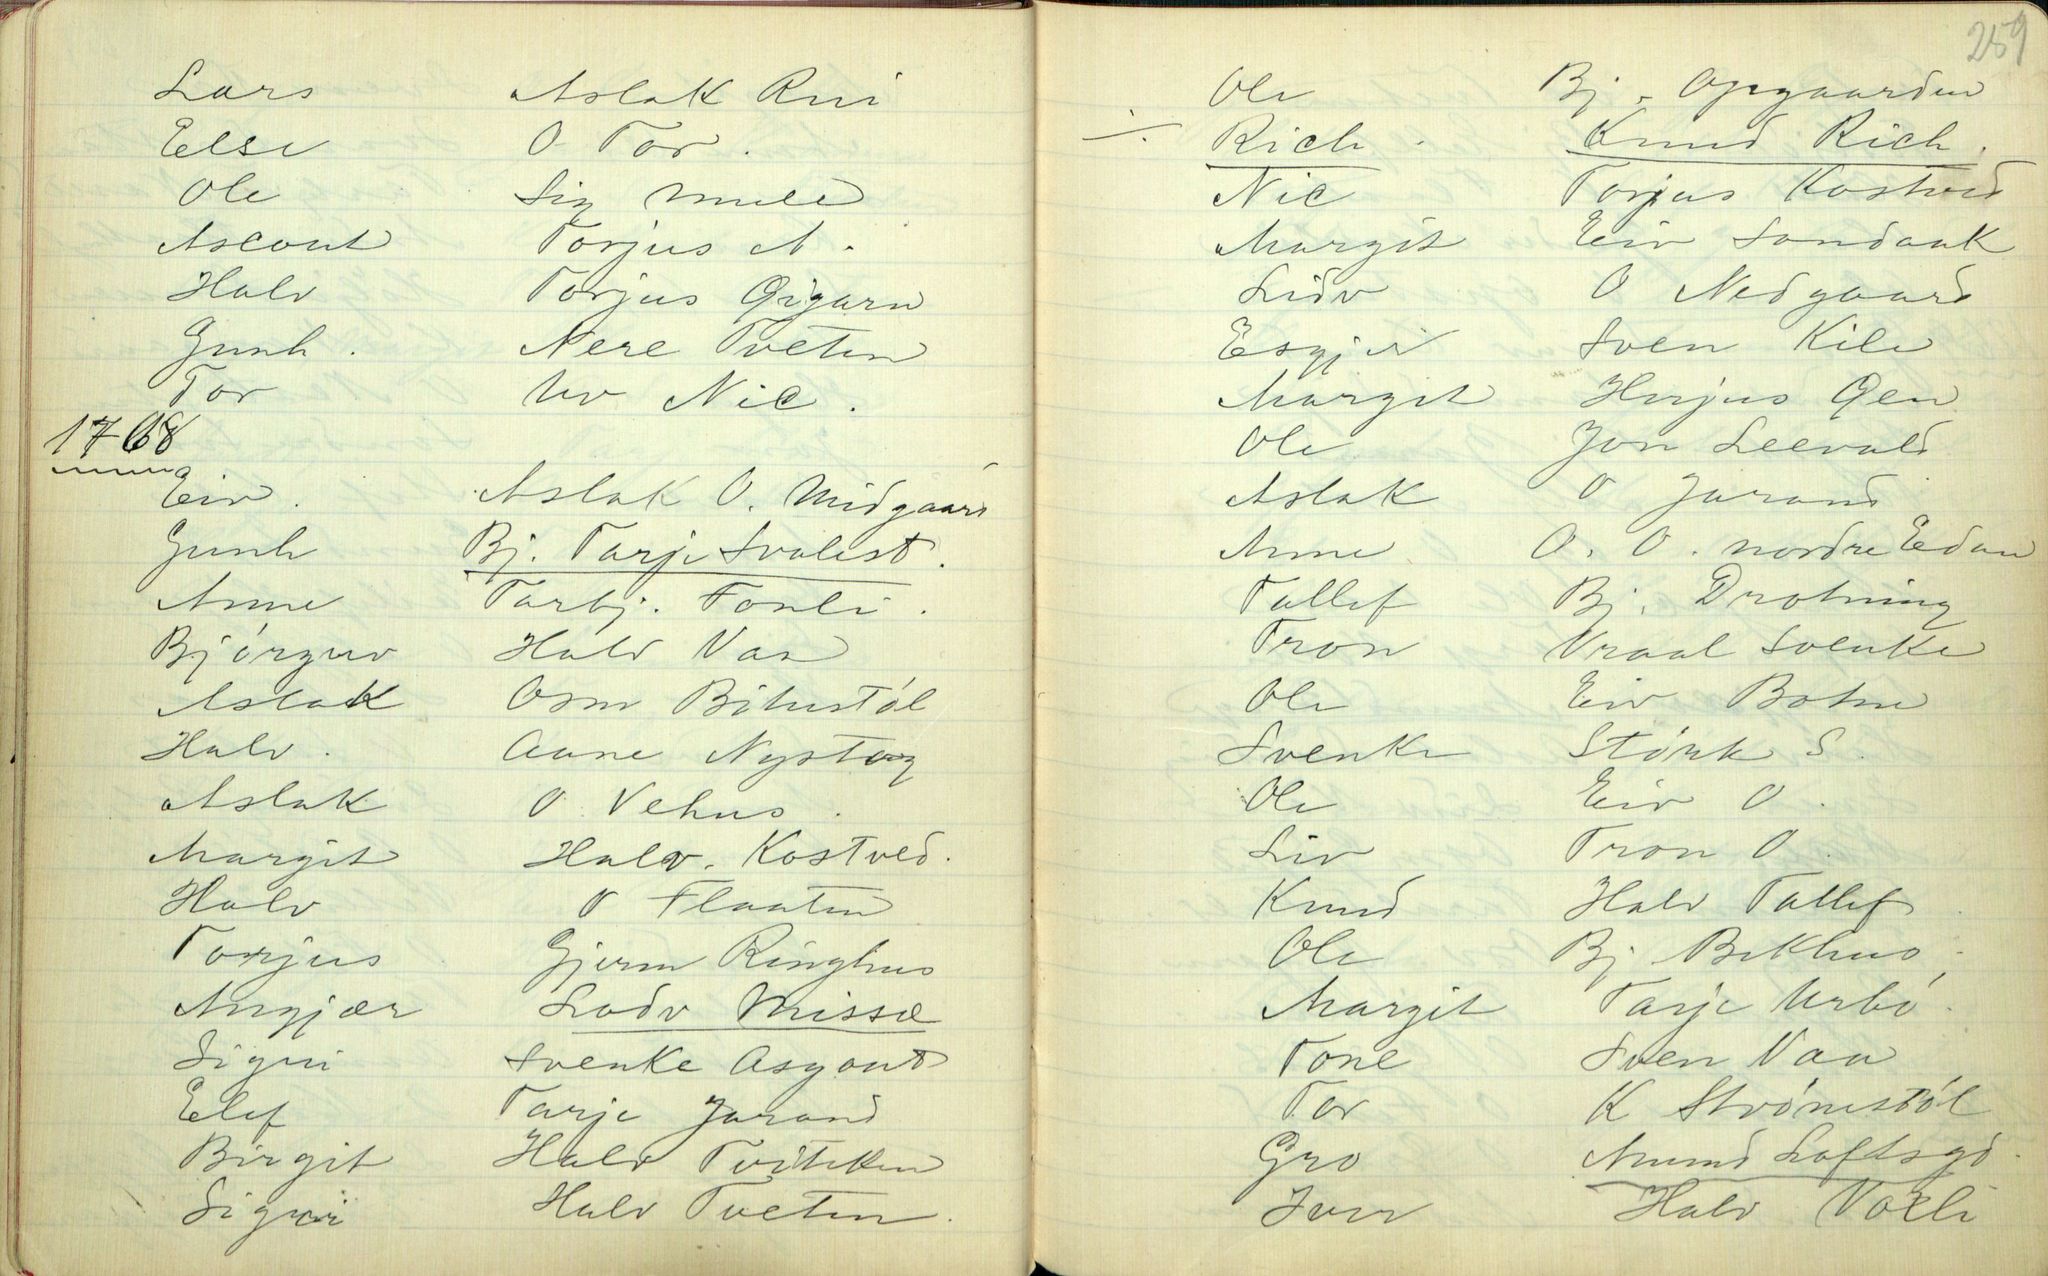 Lars Aslak Rui
Else O Tor.
Ole Sig Mule
Ascout Torjus A.
Halv Torjus Gigarn
Gunh. Nere Tveten
Tor Uv Nic.
1768
Eiv. Aslak O. Midgaard
Gunh Bj. Tarje Svalest.
Anne Tarbj. Fonli.
Bjórguv Halv Vaa
Aslak Osm Bitustól
Halv. Aane Nystog
Aslak O Vehus.
Margit Halv. Kostved.
Halv O Flaaten
Torjus Gjerm Ringhus
Angjær Lodv Missæ
Sigrii Svenke Asgout
Elef Tarje Jorand
Birgit Halv Tviteken
Sigrii Halv Tveten.
259
Ole Bj. Opegaarden
÷ Rich. Knud Rich.
Nic Torjus Kostved
Margit Eiv Sondaak
Lidv O Nedgaard
Esgjer Sven Kile
Margit Herjus Qen
Ole Jon Leevald
Aslak O Jorand
Anne O. O. nordre Edan
Tallef Bj. Drotning
Tron Vraal Svenke
Ole Eiv Botne
Svenke Stórk S.
Ole Eiv O.
Liv Tron O.
Knud Halv Tallef.
Ole Bj Bekhus.
Margit Tarje Urbó.
Tone Sven Vaa
Tor K Strómstól
Gro Amund Loftsgd.
Iver Halv Vaeli